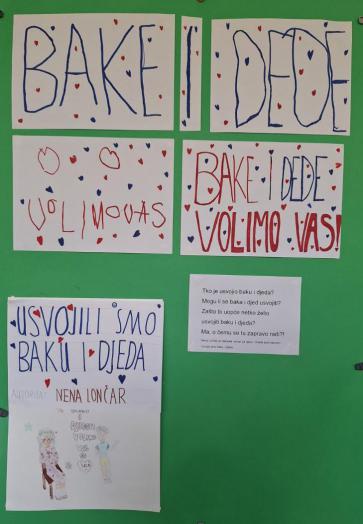 BAKE I DEDE
VOLIMO VAS
BAKE I DEDE
VOLIMO VAS!
Tko je usvojio baku i djeda?
Mogu li se baka i djed usvojiti?
Zašto bi uopće netko želio
usvojiti baku i djeda?
Ma, o čemu se tu zapravo radi?!
USVOJILI SMO
BAKU I DJEDA
NENA LONČAR